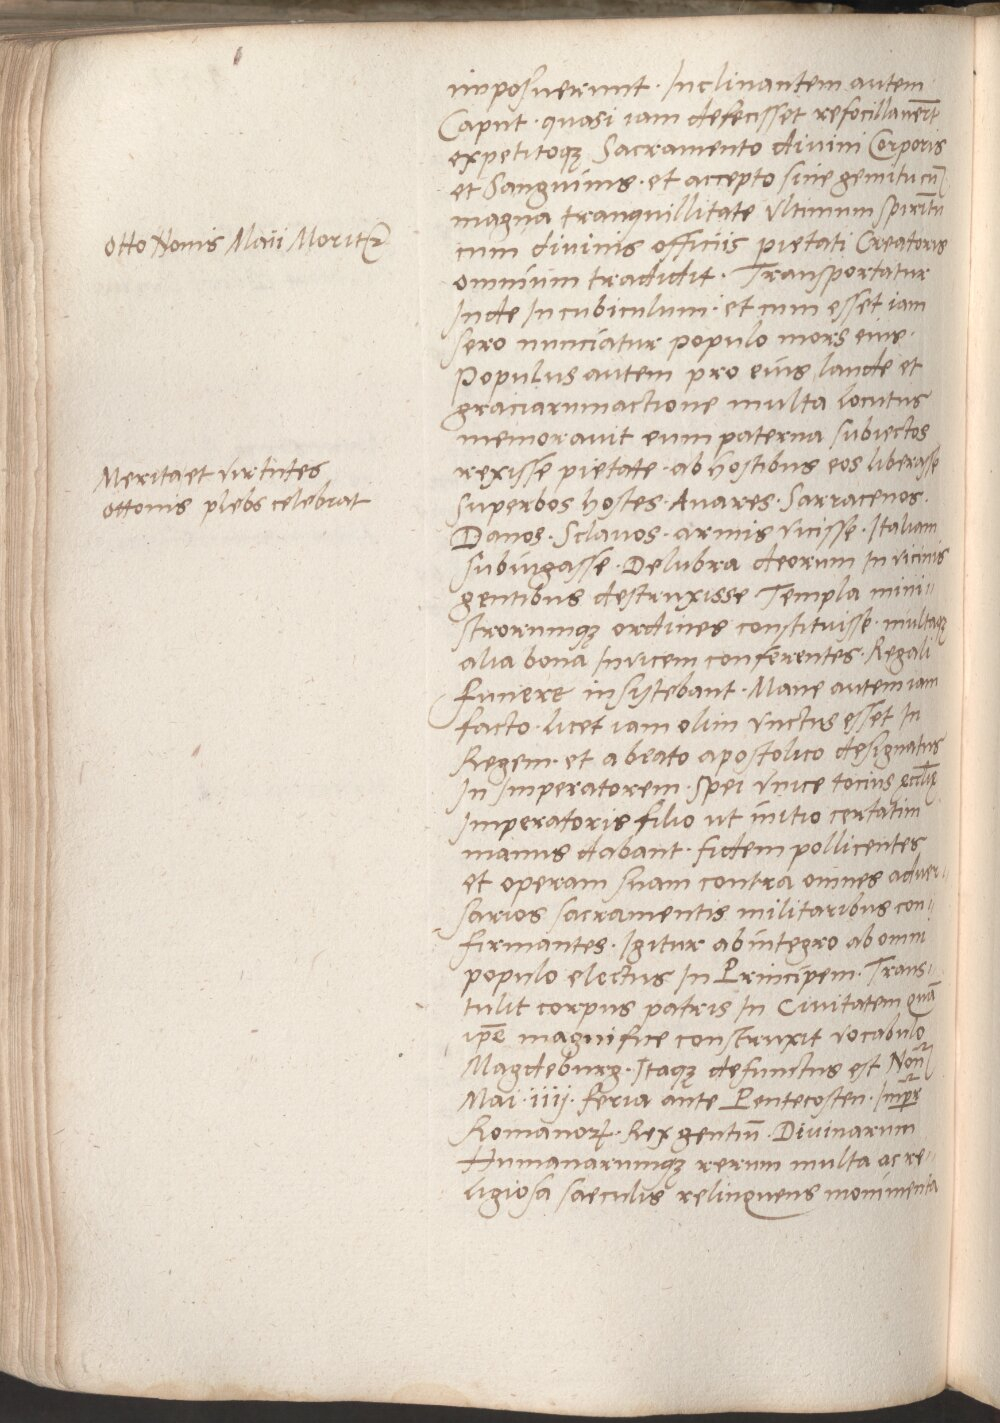 imposuerunt · Inclinantem autem
Caput · quasi iam defecisset refocillauerūt
expetitoqȝ Sacramento divini Corporis
et Sanguinis · et accepto sine gemitu cū
magna tranquillitate Vltimum spiritū
Otto Nonis Maii Moritꝛ
cum divinis officiis pietati Creatoris
omnium tradidit · Transportatur
Inde In cubiculum · et cum esset iam
sero nunciatur populo mors eius ·
Populus autem pro eius laude et
graciarumactione multa locutus
memoravit eum paterna subiectos
Merita et virtutes
rexisse pietate · ab hostibus eos liberasse
ottonis plebs celebrat
Superbos hostes · Auares · Sarracenos ·
Danos · Sclauos · armis vicisse · Italiam
subiugasse · Delubra deorum In vicinis
gentibus destruxisse Templa mini〃
strorumqȝ ordines constituisse · multaqȝ
alia bona Invicem conferentes · Regali
funere insistebant · Mane autem iam
facto · licet iam olim Vnctus esset In
Regem · et a beato apostolico designatus
In Imperatorem · spei Vnice tocius eccl̄ię
Imperatoris filio ut initio certatim
manus dabant · fidem pollicentes
et operam suam contra omnes aduer〃
sarios sacramentis militaribus con〃
firmantes · Igitur abintegro ab omni
populo electus In Principem · Trans〃
tulit corpus patris In Civitatem quā
ip̄e magnifice construxit vocabulo
Magdeburg · Itaqȝ defunctus est Non̄
Mai · iiij · feria ante Pentecosten · Imp̄r
Romanoꝝ · Rex gentiū · Divinarum
Humanarumqȝ rerum multa ac re〃
ligiosa saeculis relinquens monimenta